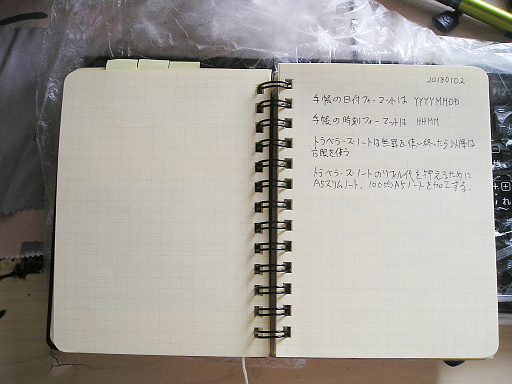 20180102
手帳の日付フォーマットは YYYYMMDD
手帳の時刻フォーマットは HHMM
トラベラーズノートは無罫を使い終ったら以降は
方眼を使う
トラベラーズノートのリフィル代を抑えるために
A5スリムノート、100均A5ノートを加工する。